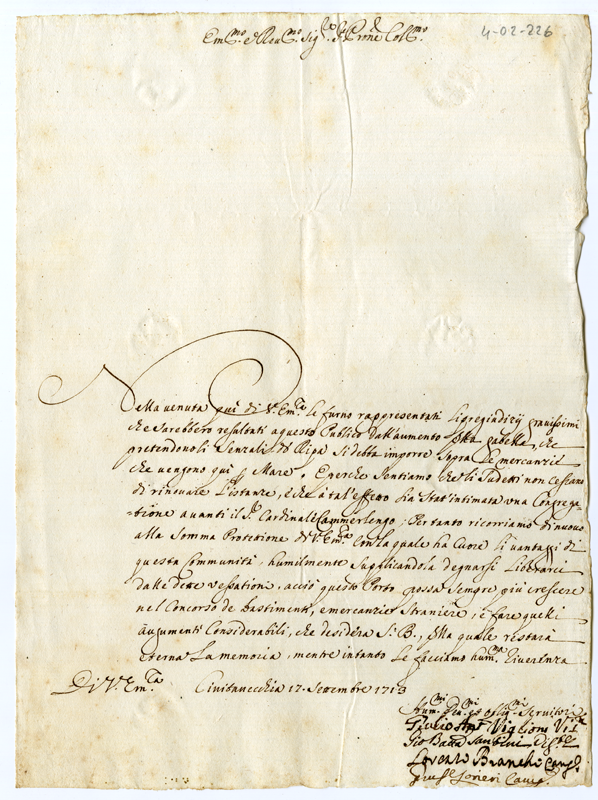 4-02-226
Em.mo e Reu.mo Sig.re e Prone Col.mo
Nella venuta qui di V. Em.za le furno rappresentati li pregiudizij grauissimi
che sarebbero resultati a questo Publico dall'aumento della gabella, che
pretendono li Senzali di Ripa si debba imporre sopra le mercanzie
che vengono qui p Mare. E perche sentiamo che li sudetti non cessano
di rinouare l'istanze, e che à tal'effetto sia stat'intimata una Congrega-
-tione auanti il S. Cardinale Camerlengo; Per tanto ricorriamo di nuouo
alla somma Protetione di V. Em.za con la quale ha Cuore li vantaggi di
questa Communità, humilmente supplicandola degnarsi liberarci
dalle dette vessationi, acciò questo Porto possa sempre più crescere
nel Concorso de bastimenti, e mercanzie straniere, e fare quelli
augumenti Considerabili, che desidera S. B., della quale restarà
eterna la memoria, mentre intanto le facciamo hum.ma riuerenza
Di V. Em.za Ciuitauecchia 17. Settembre 1713
Hum.mi Deu.mi et Obblig.mi Seruitori
Giulio Ant. Viglioni
Gio Batta
Lorenzo Bianchi